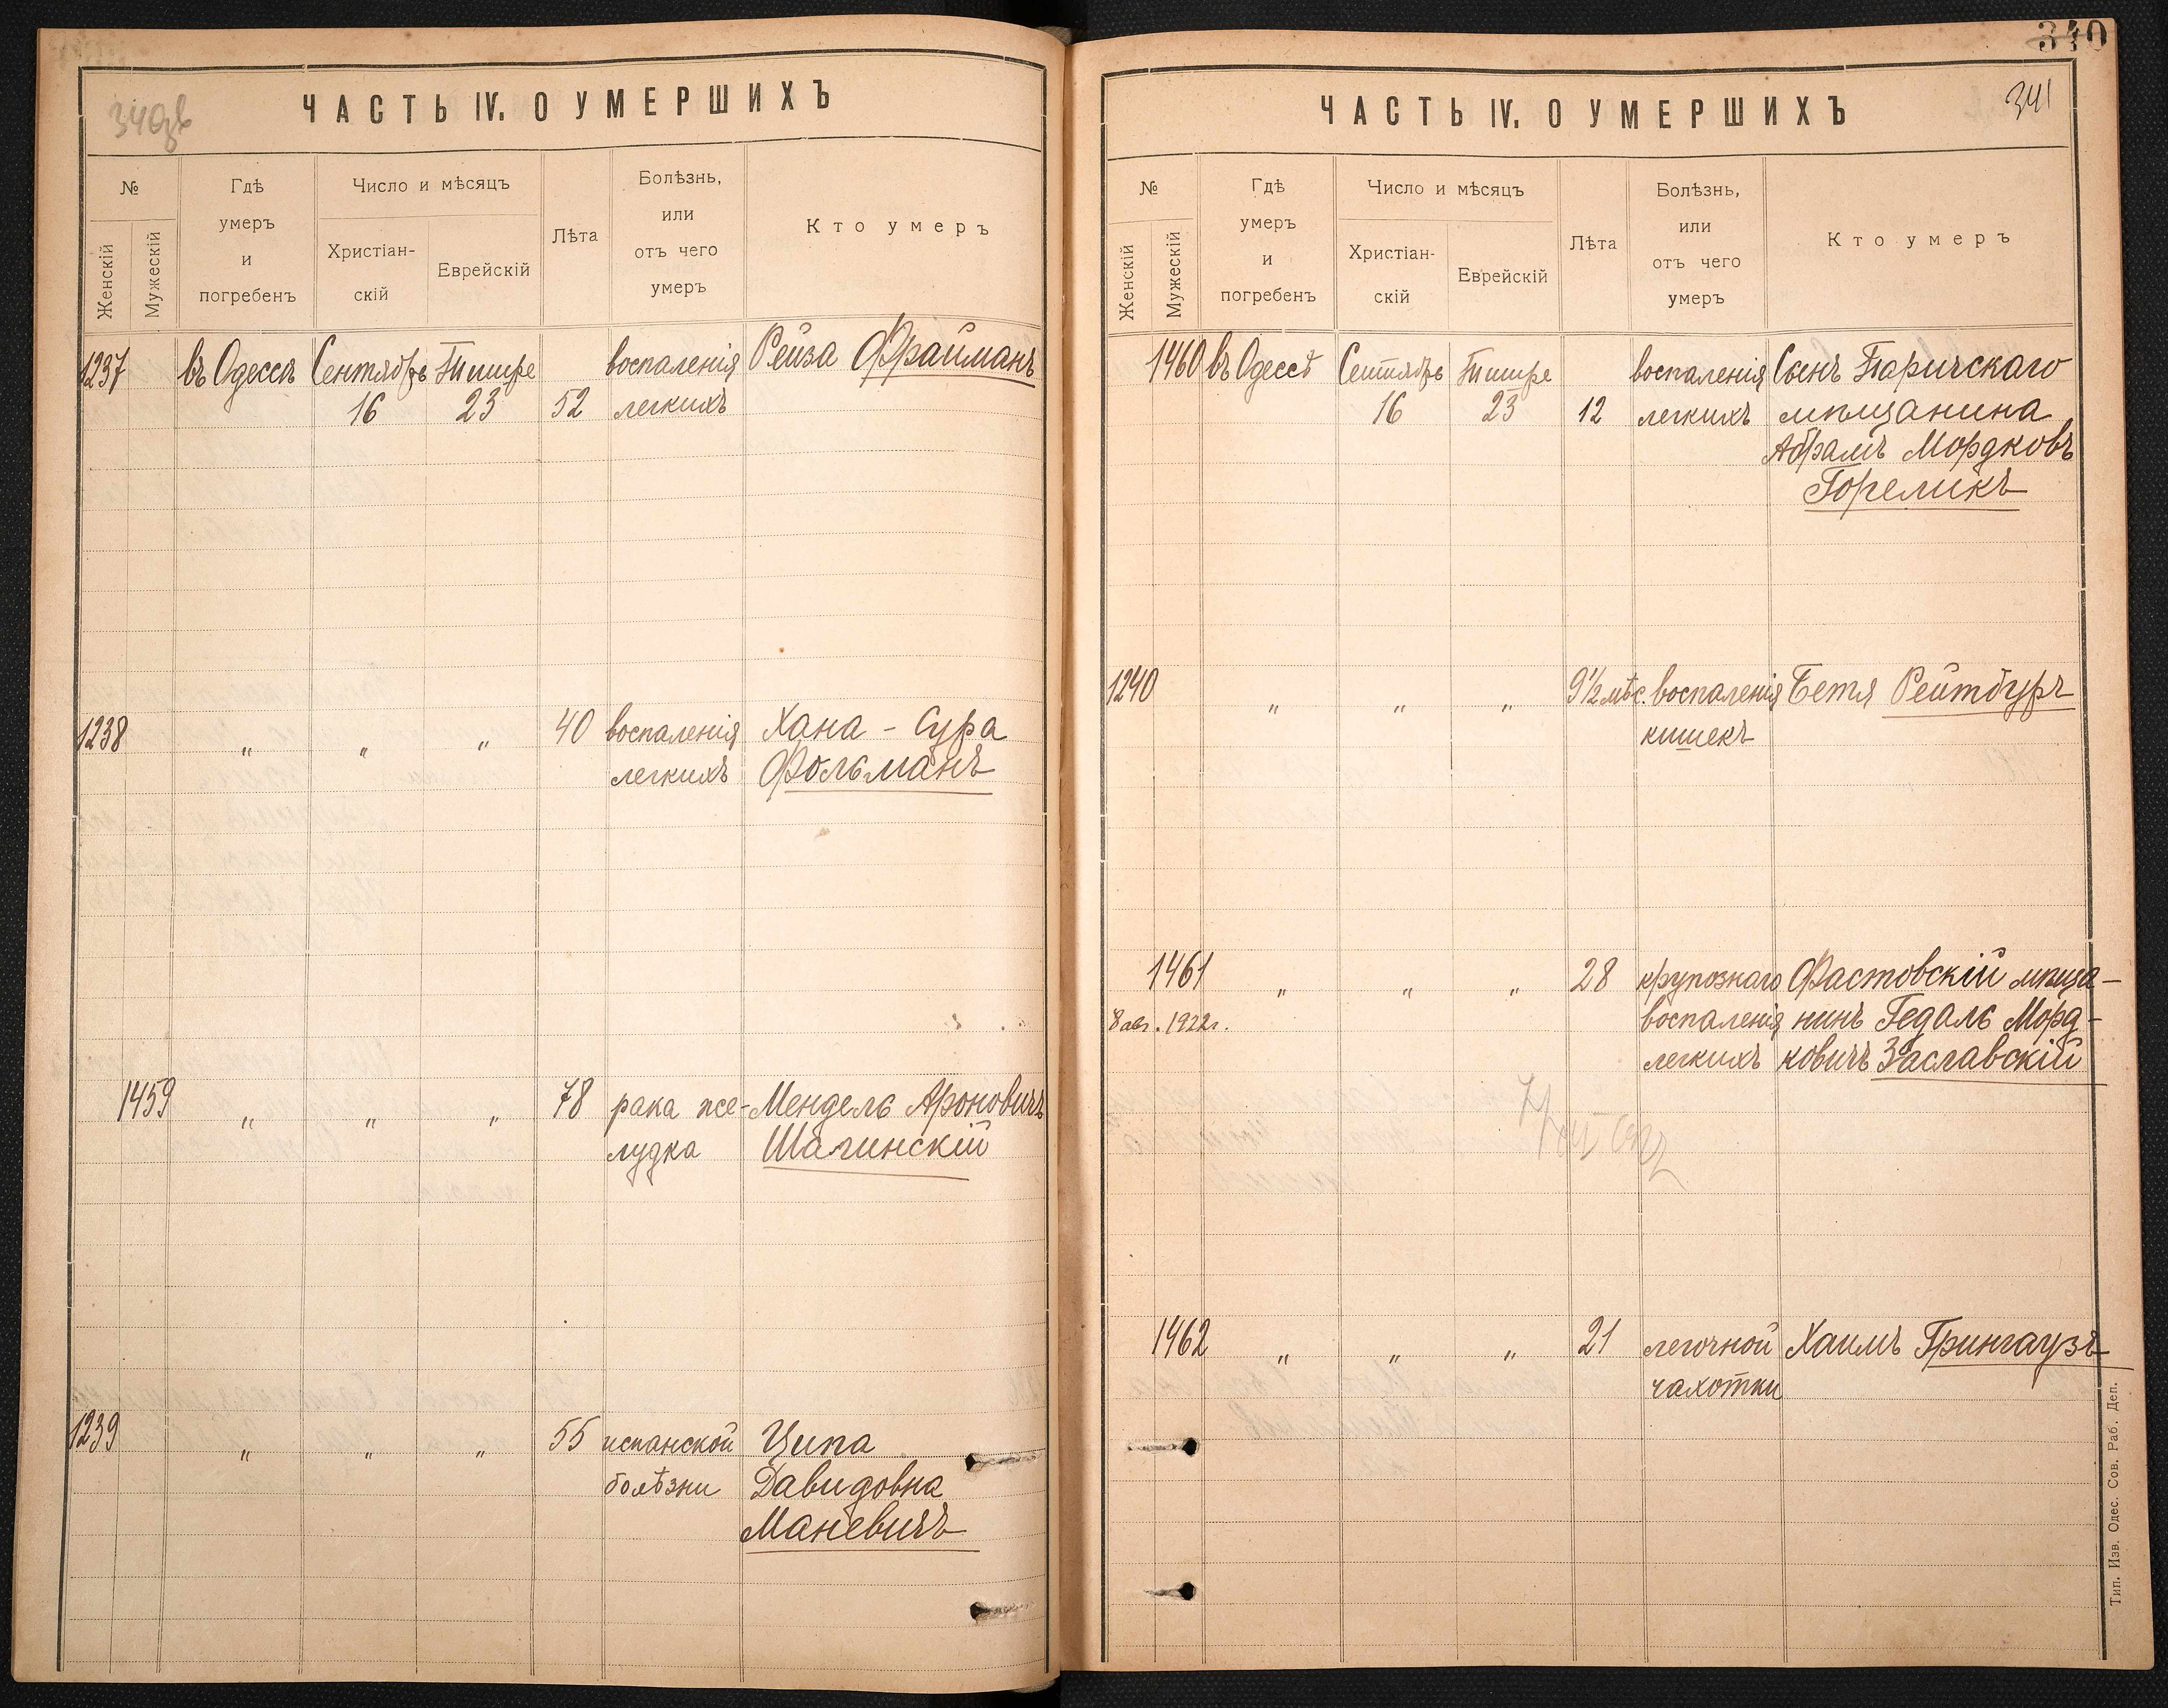 340об
ЧАСТЬ IV. О УМЕРШИХЪ
№
Женскій
Мужескій
Гдѣ
умеръ
и
погребенъ
Число и мѣсяцъ
Христіан-
скій
Еврейскій
Лѣта
Болѣзнь,
или
отъ чего
умеръ
Кто умеръ
1237 въ Одессѣ Сентябрь Тишре воспаленія Рейза Фрайманъ
16 23 52 легкихъ
1238 " " " 40 воспаленія Хана - Сура
легкихъ Фольманъ
1459 " " " 78 рака же- Мендель Ароновичъ
лудка Шагинскій
1239 " " " 55 испанской Ципа
болѣзни Давидовна
Маневичъ
340
341
ЧАСТЬ IV. О УМЕРШИХЪ
№
Женскій
Мужескій
Гдѣ
умеръ
и
погребенъ
Число и мѣсяцъ
Христіан-
скій
Еврейскій
Лѣта
Болѣзнь,
или
отъ чего
умеръ
Кто умеръ
1460 въ Одессѣ Сентябрь Тишре воспаленія Сынъ Паричскаго
16 23 12 легкихъ мѣщанина
Абрамъ Мордковъ
Гореликъ
1240 " " " 9½ мѣс. воспаленія Бетя Рейтбургъ
кишекъ
1461 " " " 28 крупознаго Фастовскій мѣща-
8 авг. 1922г. воспаленія нинъ Гедаль Морд-
легкихъ ковичъ Заславскій
1462 " " " 21 легочной Хаимъ Грингаузъ
чахотки
Тип. Изв. Одес. Сов. Раб. Деп.